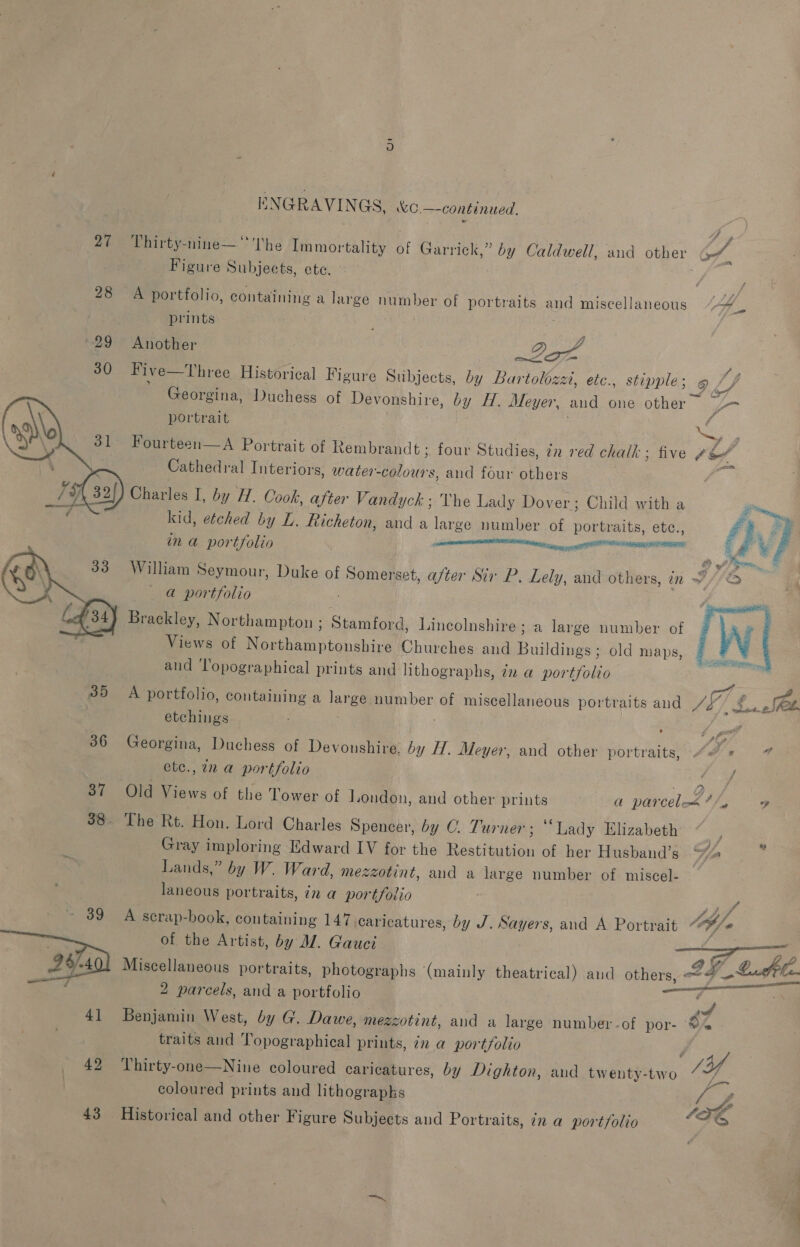 5
ENGRAVINGS, &c.—continued.
27 Thirty-nine—“The Immortality of Garrick,” by Caldwell, and other
Figure Subjects, etc.
28 A portfolio, containing a large number of portraits and miscellaneous
prints
29 Another
30 Five—Three Historical Figure Subjects, by Bartolozzi, etc., stipple;
Georgina, Duchess of Devonshire, by H. Meyer, and one other
portrait
31 Fourteen—A Portrait of Rembrandt; four Studies, in red chalk; five
Cathedral Interiors, water-colours, and four others
32 Charles I, by H. Cook, after Vandyck; The Lady Dover; Child with a
kid, etched by L. Richeton, and a large number of portraits, etc.,
in a portfolio
33 William Seymour, Duke of Somerset, after Sir P. Lely, and others, in
a portfolio
34 Brackley, Northampton; Stamford, Lincolnshire; a large number of
Views of Northamptonshire Churches and Buildings; old maps,
and Topographical prints and lithographs, in a portfolio
35 A portfolio, containing a large number of miscellaneous portraits and
etchings
36 Georgina, Duchess of Devonshire, by H. Meyer, and other portraits,
etc., in a portfolio
37 Old Views of the Tower of London, and other prints a parcel
38 The Rt. Hon. Lord Charles Spencer, by C. Turner; “Lady Elizabeth
Gray imploring Edward IV for the Restitution of her Husband’s
Lands,” by W. Ward, mezzotint, and a large number of miscel-
laneous portraits, in a portfolio
39 A scrap-book, containing 147 caricatures, by J. Sayers, and A Portrait
of the Artist, by M. Gauci
40 Miscellaneous portraits, photographs (mainly theatrical) and others,
2 parcels, and a portfolio
41 Benjamin West, by G. Dawe, mezzotint, and a large number of por-
traits and Topographical prints, in a portfolio
42 Thirty-one—Nine coloured caricatures, by Dighton, and twenty-two
coloured prints and lithographs
43 Historical and other Figure Subjects and Portraits, in a portfolio